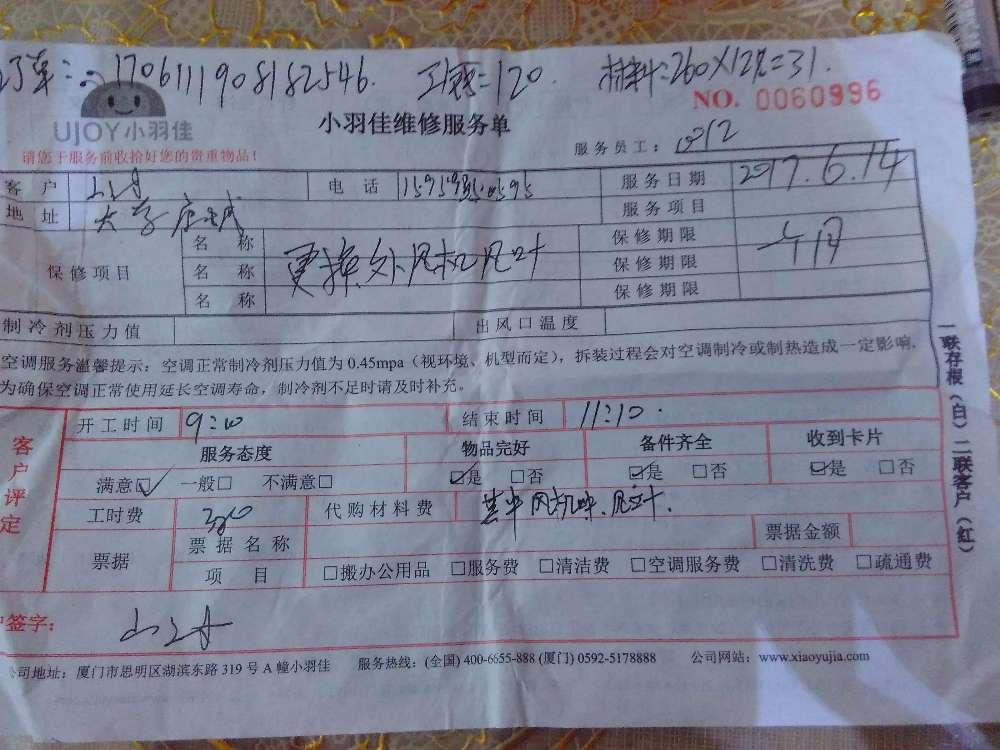 订单:1706111908182546. 工费=120. 材料:260×12%=31.
NO. 0060996
UJOY小羽佳
小羽佳维修服务单
请您于服务前收拾好您的贵重物品!
服务员工:
客户 电话 服务日期 2017.6.14
地址 大学 服务项目
保修项目 名称 更换外风机风叶 保修期限 一个月
名称 保修期限
名称 保修期限
制冷剂压力值 出风口温度
空调服务温馨提示:空调正常制冷剂压力值为0.45mpa(视环境、机型而定),拆装过程会对空调制冷或制热造成一定影响,
为确保空调正常使用延长空调寿命,制冷剂不足时请及时补充。
一联存根(白)二联客户(红)
客户评定
开工时间 9:10 结束时间 11:10.
服务态度 物品完好 备件齐全 收到卡片
满意☑ 一般□ 不满意□ ☑是 □否 ☑是 □否 ☑是 □否
工时费 代购材料费
票据 票据名称 票据金额
项目 □搬办公用品 □服务费 □清洁费 □空调服务费 □清洗费 □疏通费
户签字:
公司地址:厦门市思明区湖滨东路319号A幢小羽佳 服务热线:(全国) 400-6655-888 (厦门) 0592-5178888 公司网站:www.xiaoyujia.com